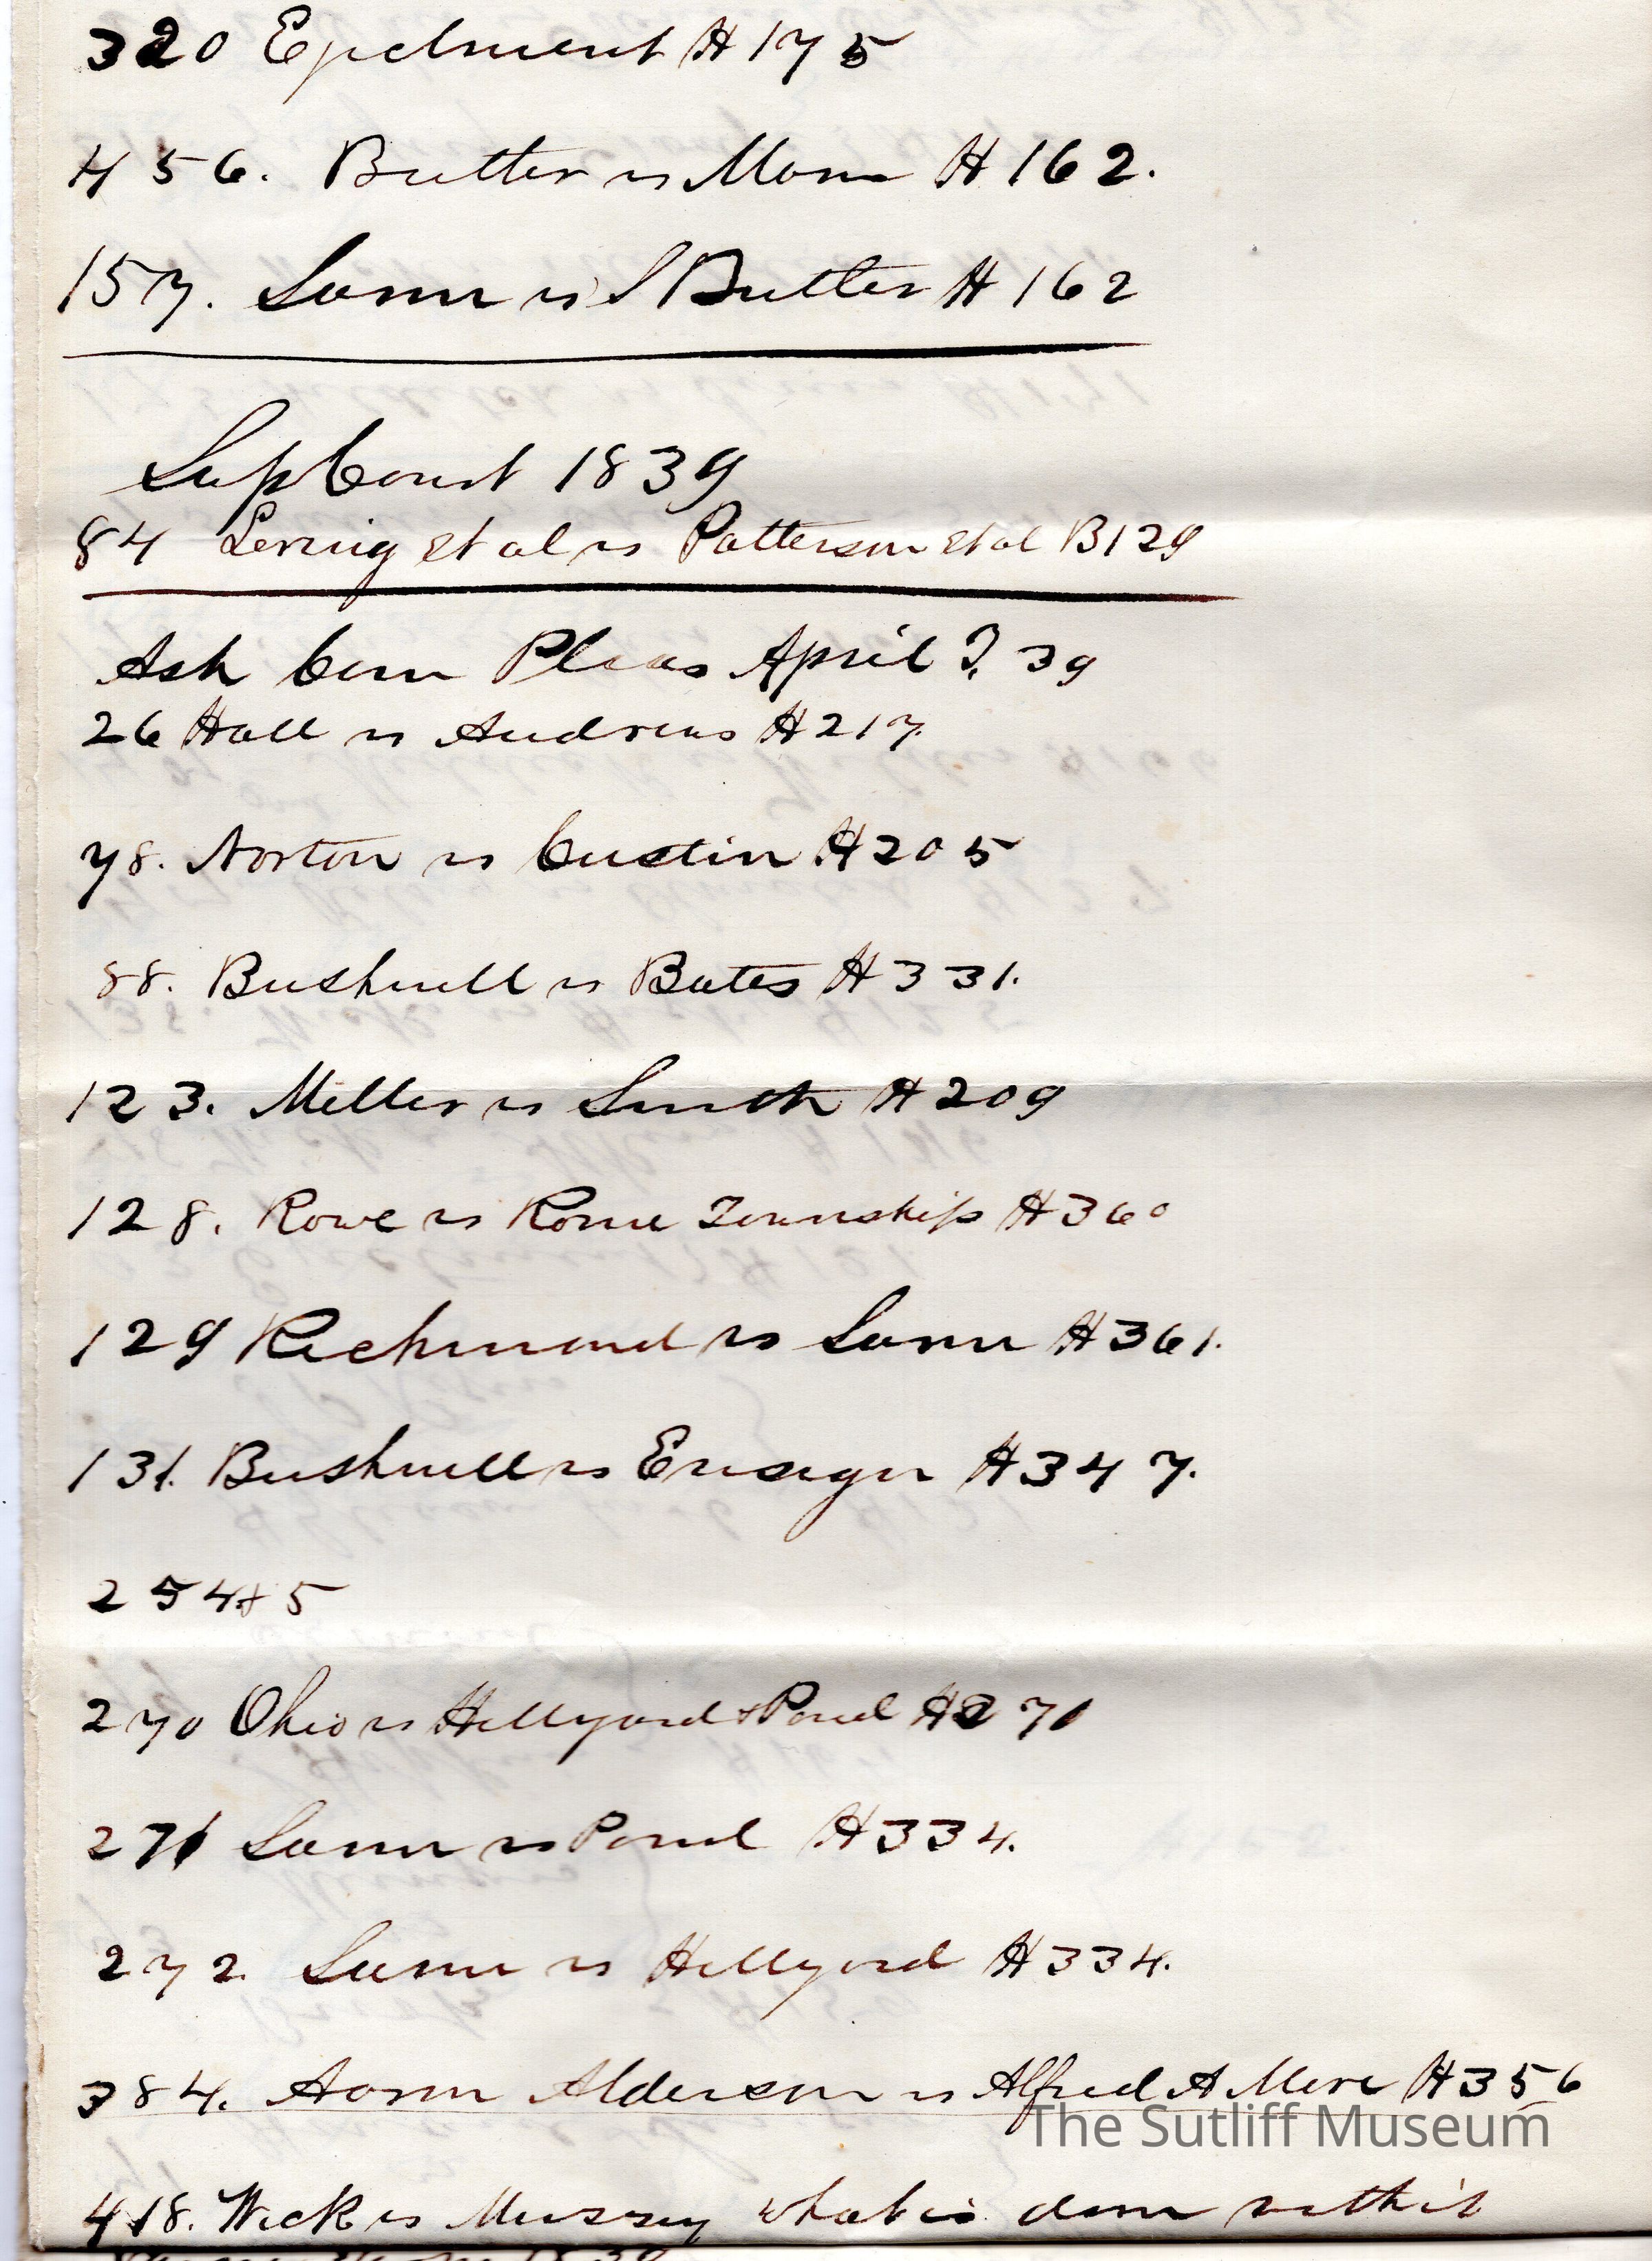 320 Ejectment H 175
456. Butler vs Mann H 162.
157. Same vs S Butler H 162
Sup Court 1839
84 Lering et al vs Patterson et al B 129
Ash Com Pleas April T. 39
26 Hall vs Andrews H 217.
78. Norton vs Custin H 205
88. Bushnell vs Bates H 331.
123. Miller vs Smith H 209
128. Rowe vs Rome Township H 360
129 Richmond vs Same H 361.
131. Bushnell vs Ensign H 347.
254 + 5
270 Ohio vs Hellyard & Pond H 270
271 Same vs Pond H 334.
272. Same vs Hellyard H 334.
384. Aaron Alderson vs Alfred A More H 356
The Sutliff Museum
418. Wick vs Mussey what is done with it